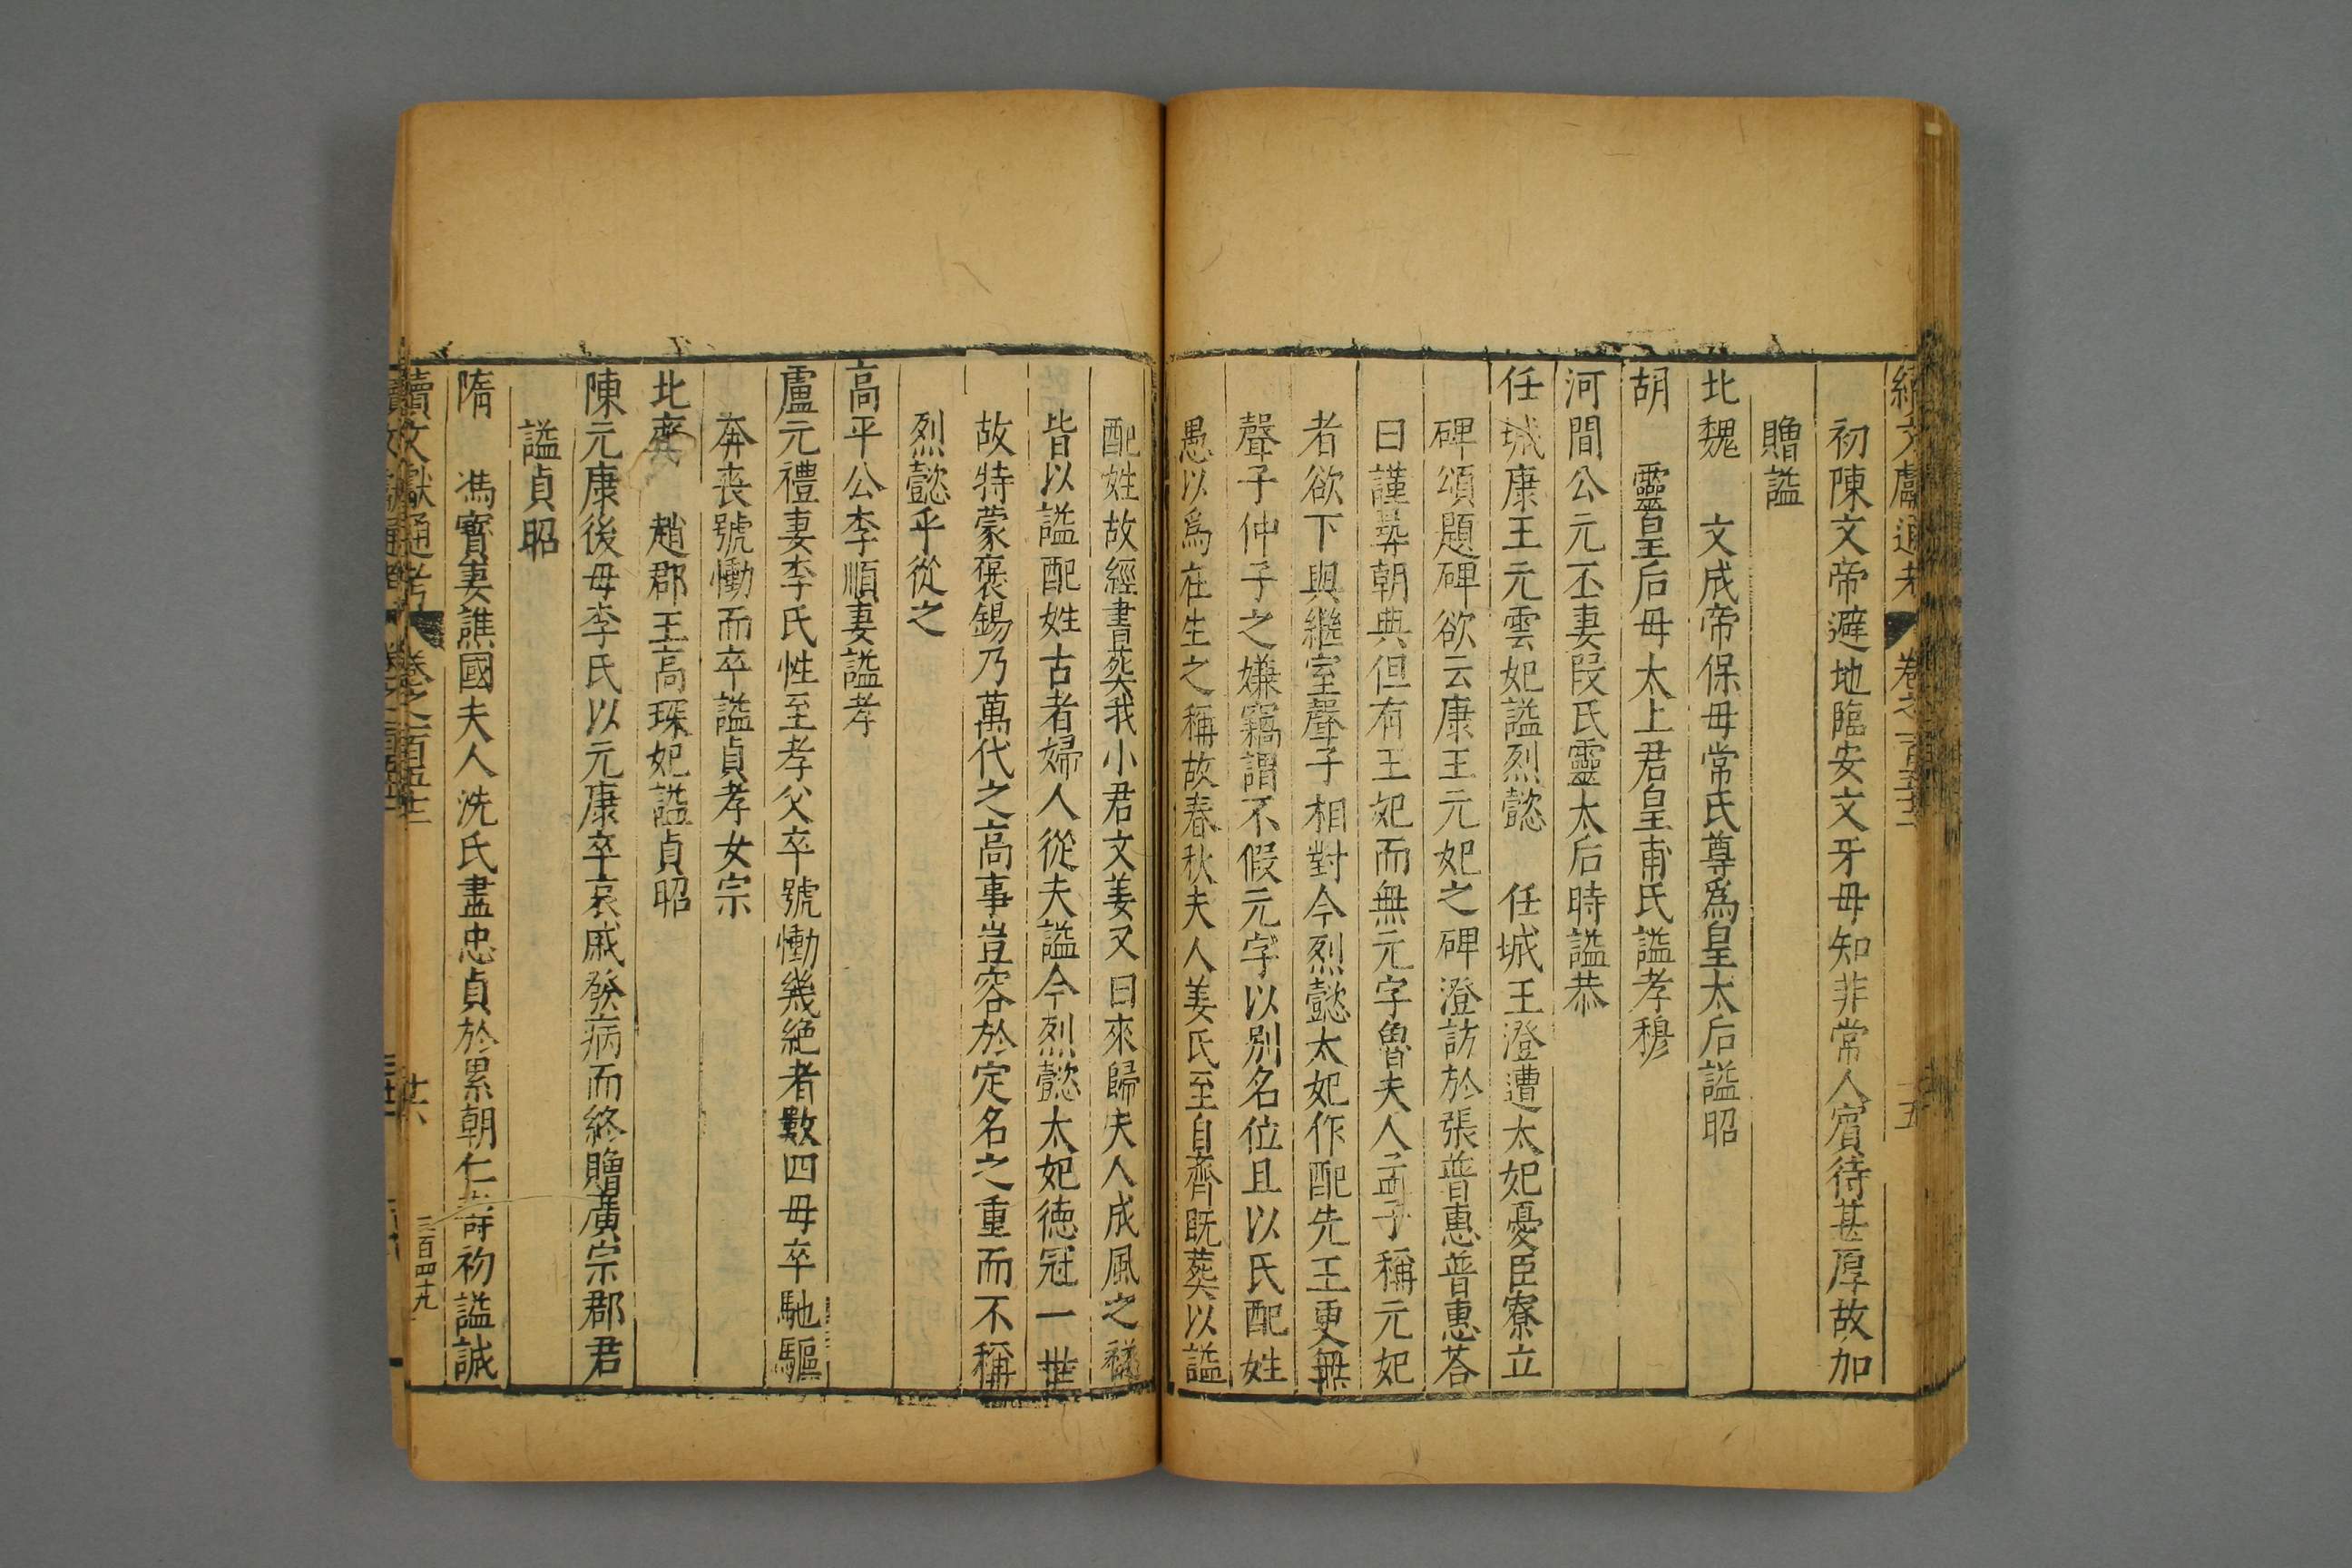 初陳文帝避地臨安文牙毋知非常人賔待甚厚故加
贈謚
北魏 文成帝保毋常氏尊爲皇太后謚昭
胡 靈皇后毋太上君皇甫氏謚孝穆
河間公元丕妻段氏靈太后時謚恭
任城康王元雲妃謚烈懿 任城王澄遭太妃憂臣寮立
碑頌題碑欲云康王元妃之碑澄訪於張普惠普惠荅
曰謹尋朝典但有王妃而無元字魯夫人孟子稱元妃
者欲下與繼室聲子相對今烈懿太妃作配先王更無
聲子仲子之嫌竊謂不假元字以別名位且以氏配姓
愚以爲在生之稱故春秋夫人姜氏至自齊既葬以謚
配姓故經書葬我小君文姜又曰來歸夫人成風之襚
皆以謚配姓古者婦人從夫謚今烈懿太妃徳冠一世
故特蒙褒錫乃萬代之高事豈容於定名之重而不稱
烈懿乎從之
高平公李順妻謚孝
盧元禮妻李氏性至孝父卒號慟幾絶者數四毋卒馳驅
奔丧號慟而卒謚貞孝女宗
北齊 趙郡王高琛妃謚貞昭
陳元康後毋李氏以元康卒哀慼發病而終贈廣宗郡君
謚貞昭
隋 馮寳妻譙國夫人洗氏盡忠貞於累朝仁壽初謚誠
續文獻通考 卷之一百五十 廿六
三百四十九